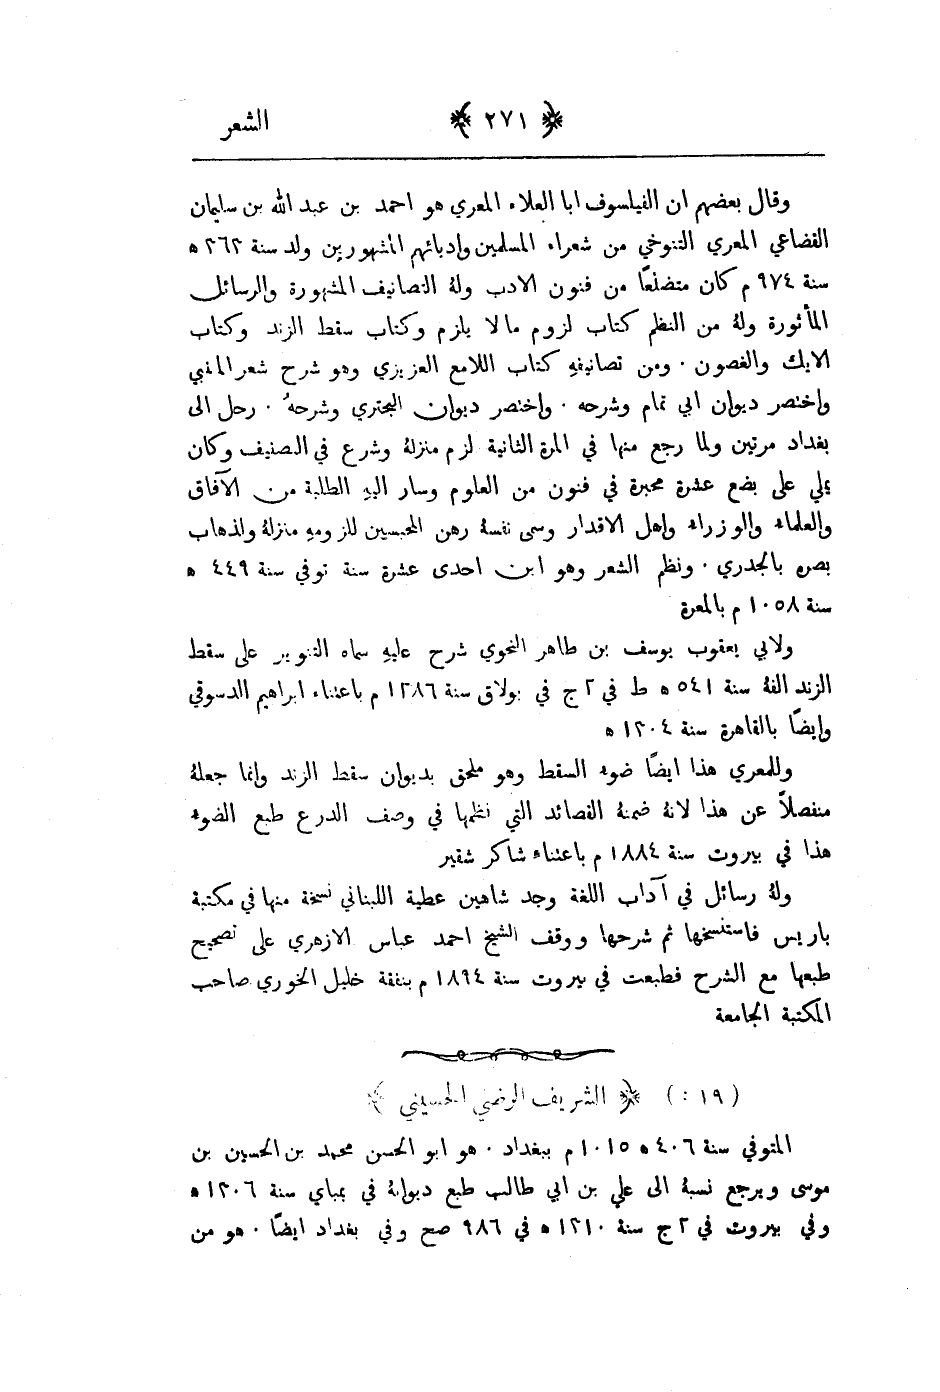 الشعر ﴿ ٢٧١ ﴾
وقال بعضهم ان الفيلسوف ابا العلاء المعري هو احمد بن عبد الله بن سليمان
القضاعي المعري التنوخي من شعراء المسلمين وادبائهم المشهورين ولد سنة ٣٦٣ ه
سنة ٩٧٤ م كان متضلعًا من فنون الادب ولهُ التصانيف المشهورة والرسائل
المأثورة ولهُ من النظم كتاب لزوم ما لا يلزم وكتاب سقط الزند وكتاب
الايك والغصون ٠ ومن تصانيفهِ كتاب اللامع العزيزي وهو شرح شعر المتنبي
واختصر ديوان ابي تمام وشرحه ٠ واختصر ديوان البحتري وشرحهُ ٠ رحل الى
بغداد مرتين ولما رجع منها في المرة الثانية لزم منزلهُ وشرع في التصنيف وكان
يملي على بضع عشرة محبرة في فنون من العلوم وسار اليهِ الطلبة من الآفاق
والعلماء والوزراء واهل الاقدار وسمى نفسهُ رهن المحبسين للزومهِ منزلهُ ولذهاب
بصره بالجدري ٠ ونظم الشعر وهو ابن احدى عشرة سنة توفي سنة ٤٤٩ ه
سنة ١٠٥٨ م بالمعرة
ولابي يعقوب يوسف بن طاهر النحوي شرح عليهِ سماه التنوير على سقط
الزند الفهُ سنة ٥٤١ ه ط في ٢ ج في بولاق سنة ١٢٨٦ م باعتناء ابراهيم الدسوقي
وايضًا بالقاهرة سنة ١٣٠٤ ه
وللمعري هذا ايضًا ضوء السقط وهو ملحق بديوان سقط الزند وانما جعلهُ
منفصلاً عن هذا لانهُ ضمنهُ القصائد التي نظمها في وصف الدرع طبع الضوء
هذا في بيروت سنة ١٨٨٤ م باعتناء شاكر شقير
ولهُ رسائل في آداب اللغة وجد شاهين عطية اللبناني نسخة منها في مكتبة
باريس فاستنسخها ثم شرحها ووقف الشيخ احمد عباس الازهري على تصحيح
طبعها مع الشرح فطبعت في بيروت سنة ١٨٩٤ م بنفقة خليل الخوري صاحب
المكتبة الجامعة
( ١٩ : ) ﴿ الشريف الرضي الحسيني ﴾
المتوفي سنة ٤٠٦ ه ١٠١٥ م ببغداد ٠ هو ابو الحسن محمد بن الحسين بن
موسى ويرجع نسبهُ الى علي بن ابي طالب طبع ديوانهُ في بمباي سنة ١٣٠٦ ه
وفي بيروت في ٢ ج سنة ١٣١٠ ه في ٩٨٦ صح وفي بغداد ايضًا ٠ هو من